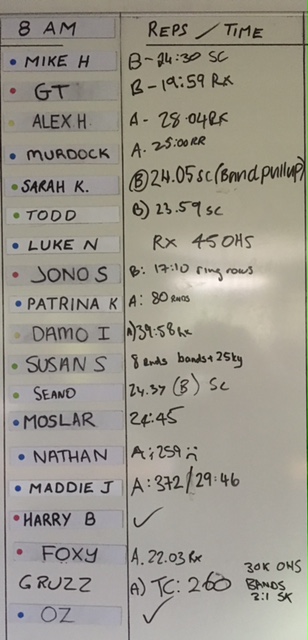 8 AM REPS / TIME
MIKE H B-24:30 SC
GT B-19:59 Rx
ALEX H. A- 28:04RX
MURDOCK A. 25:00RR
SARAH K. (B) 24.05 SC (Band pullup)
TODD B) 23.59 SC
LUKE N RX 45 OHS
JONO S B: 17:10 ring rows
PATRINA K A: 80 RNDS
DAMO I A) 39:58
SUSAN S 8 rnds bands + 25kg
SEANO 24.37 (B) SC
MOSLAR 24:45
NATHAN A: 259 :(
MADDIE J A: 372 / 29:46
HARRY B ✓
FOXY A. 22.03 Rx
GRUZZ A) TC: 260 30K OHS
BANDS
2:1 SK
OZ ✓